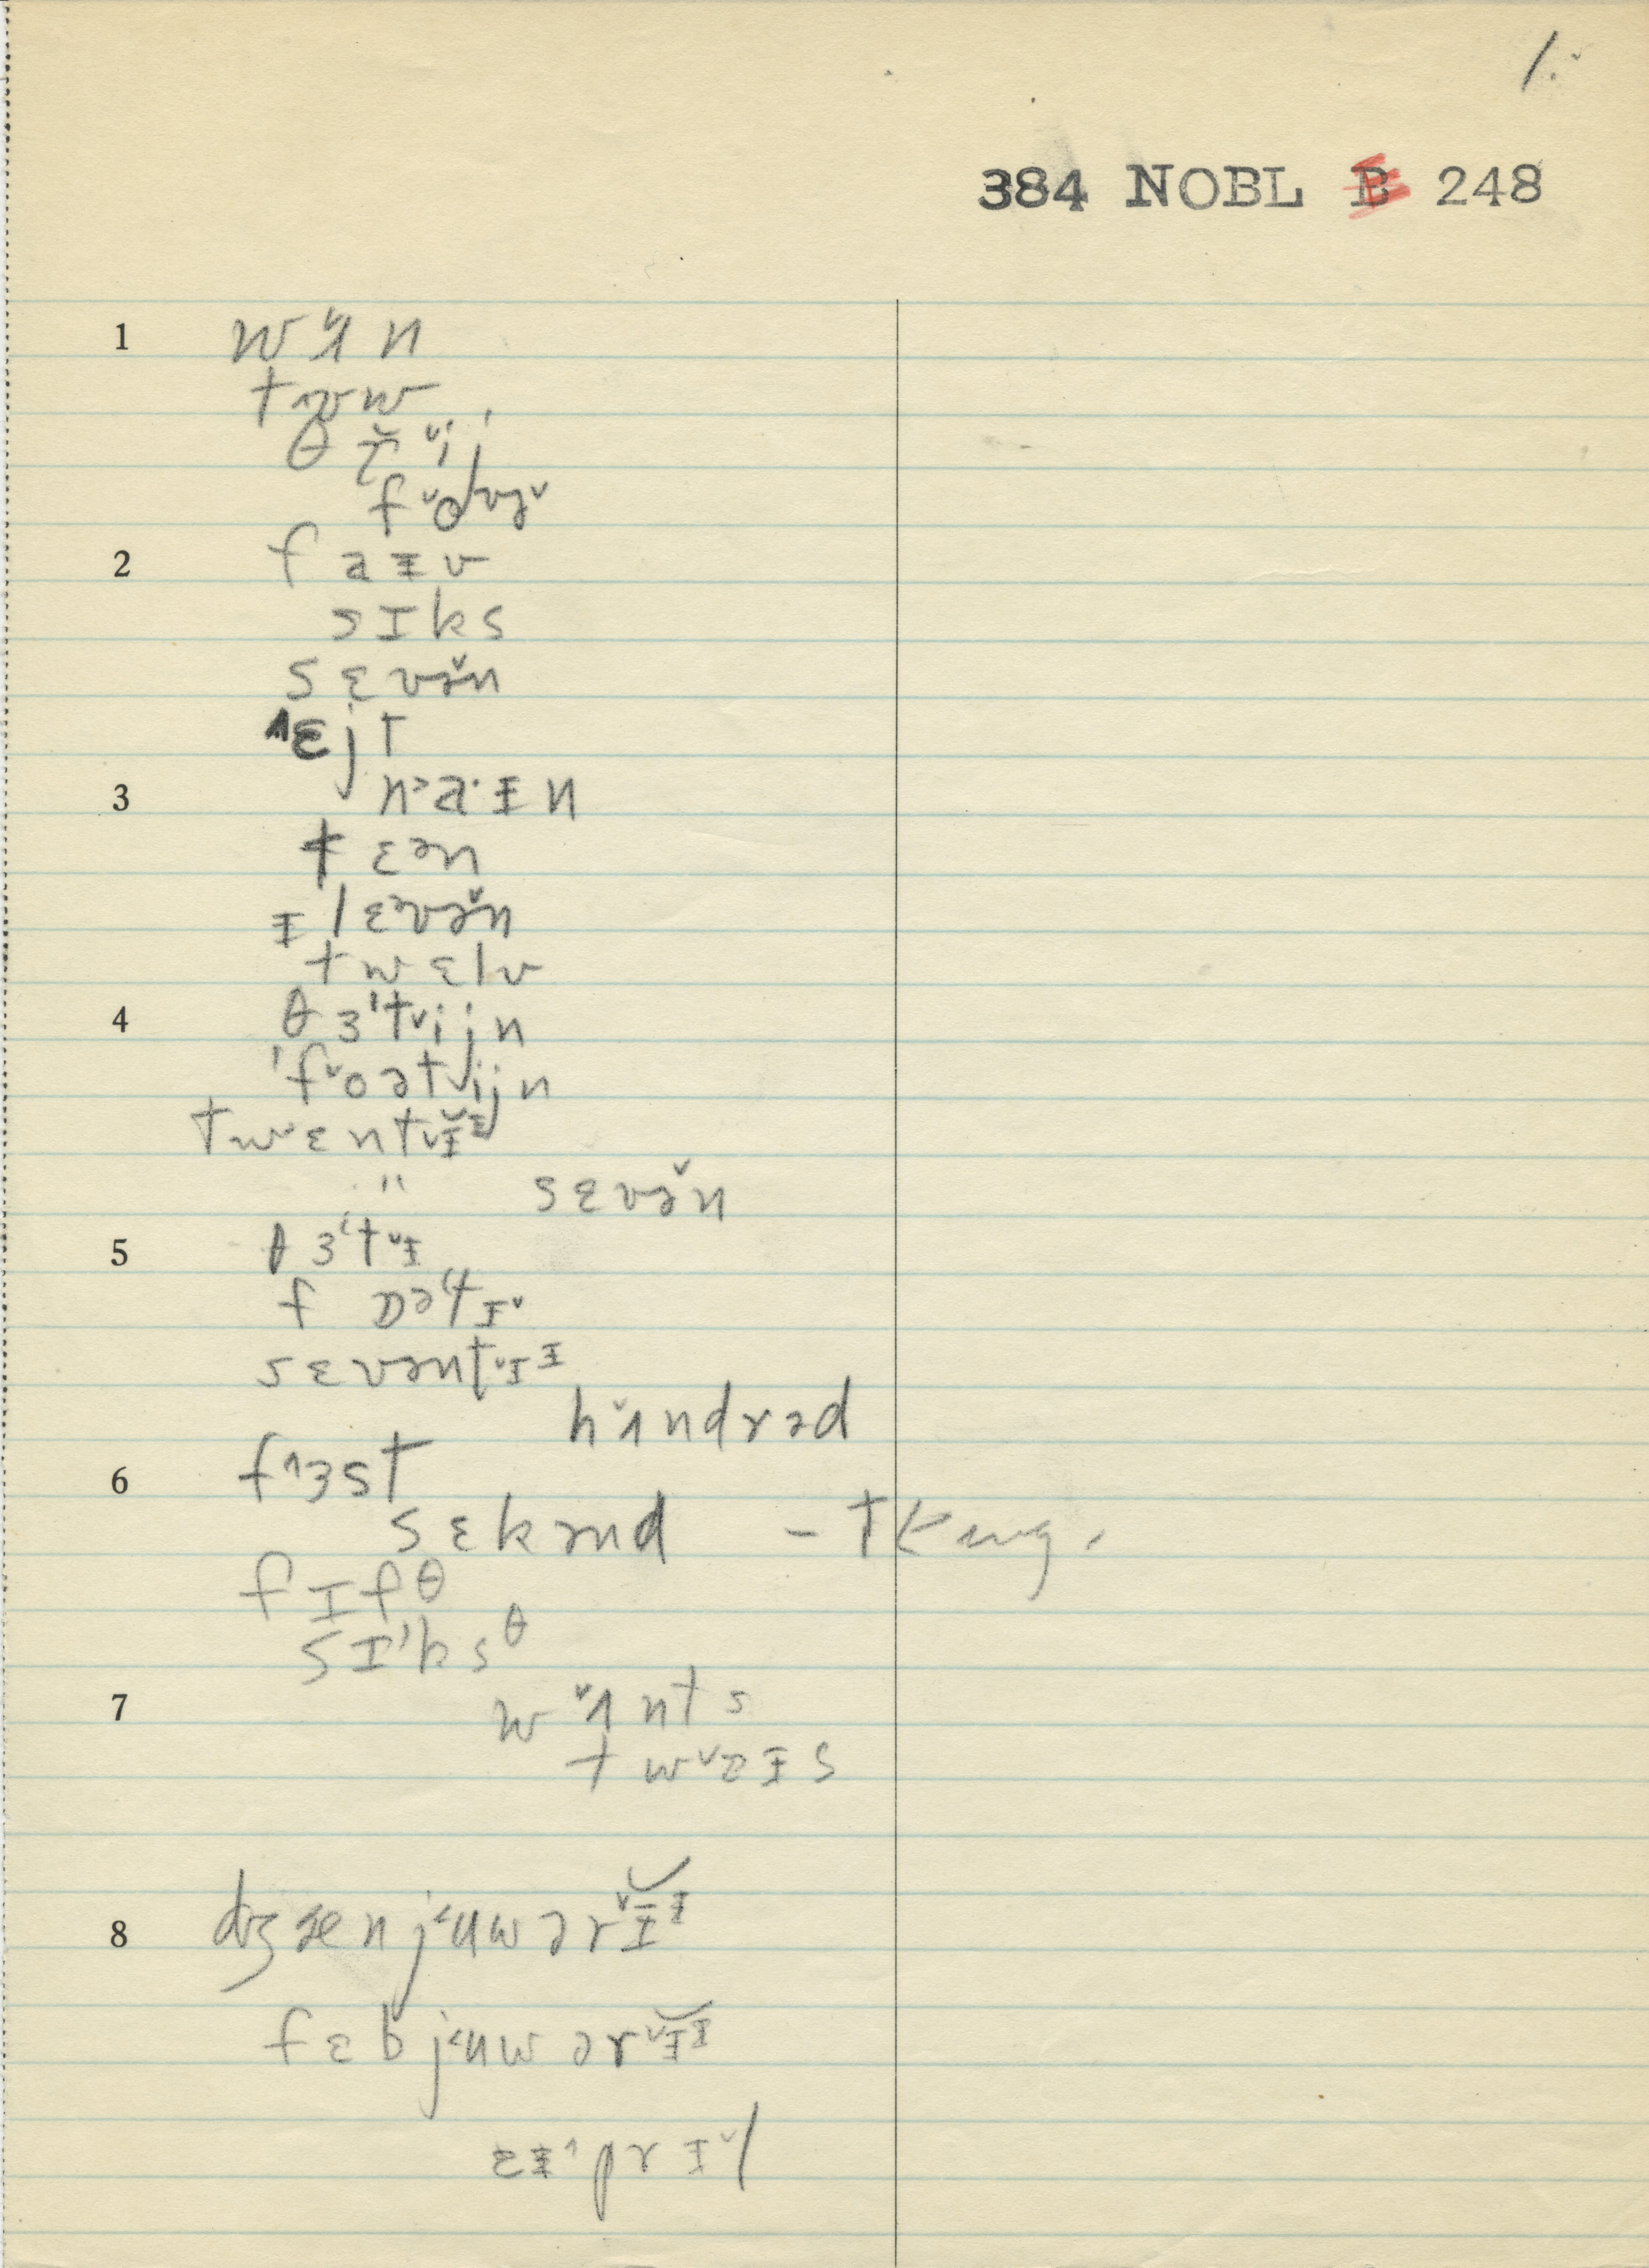 1.
384 NOBL B 248
1 wʌ̌n
tʉw
θr̆ᵛij
fᵛoᵛə̆
2 faɪv
sɪks
sɛvə̆n
˄ɛjt
3 n˃a·ɪn
tɛən
ɪlɛ˃və̆n
twɛlv
4 θɜ'tᵛijn
'fᵛoətᵛijn
twɛntᵛɪ̆ᶦ
" sɛvə̆n
5 θɜ'tᵛɪ
fɒə'tɪᵛ
sɛvəntᵛɪᶦ
hᵛʌndrəd
6 f˄ɜst
sɛkənd –
fɪfθ
sɪ'ksθ
7 wᵛʌnts
twᵛaɪs
8 dʒænj˂ʉwərᵛɪ̆ᶦ
fɛbj˂ʉwərᵛɪ̆ᶦ
ɛɪ˄prɪᵛl